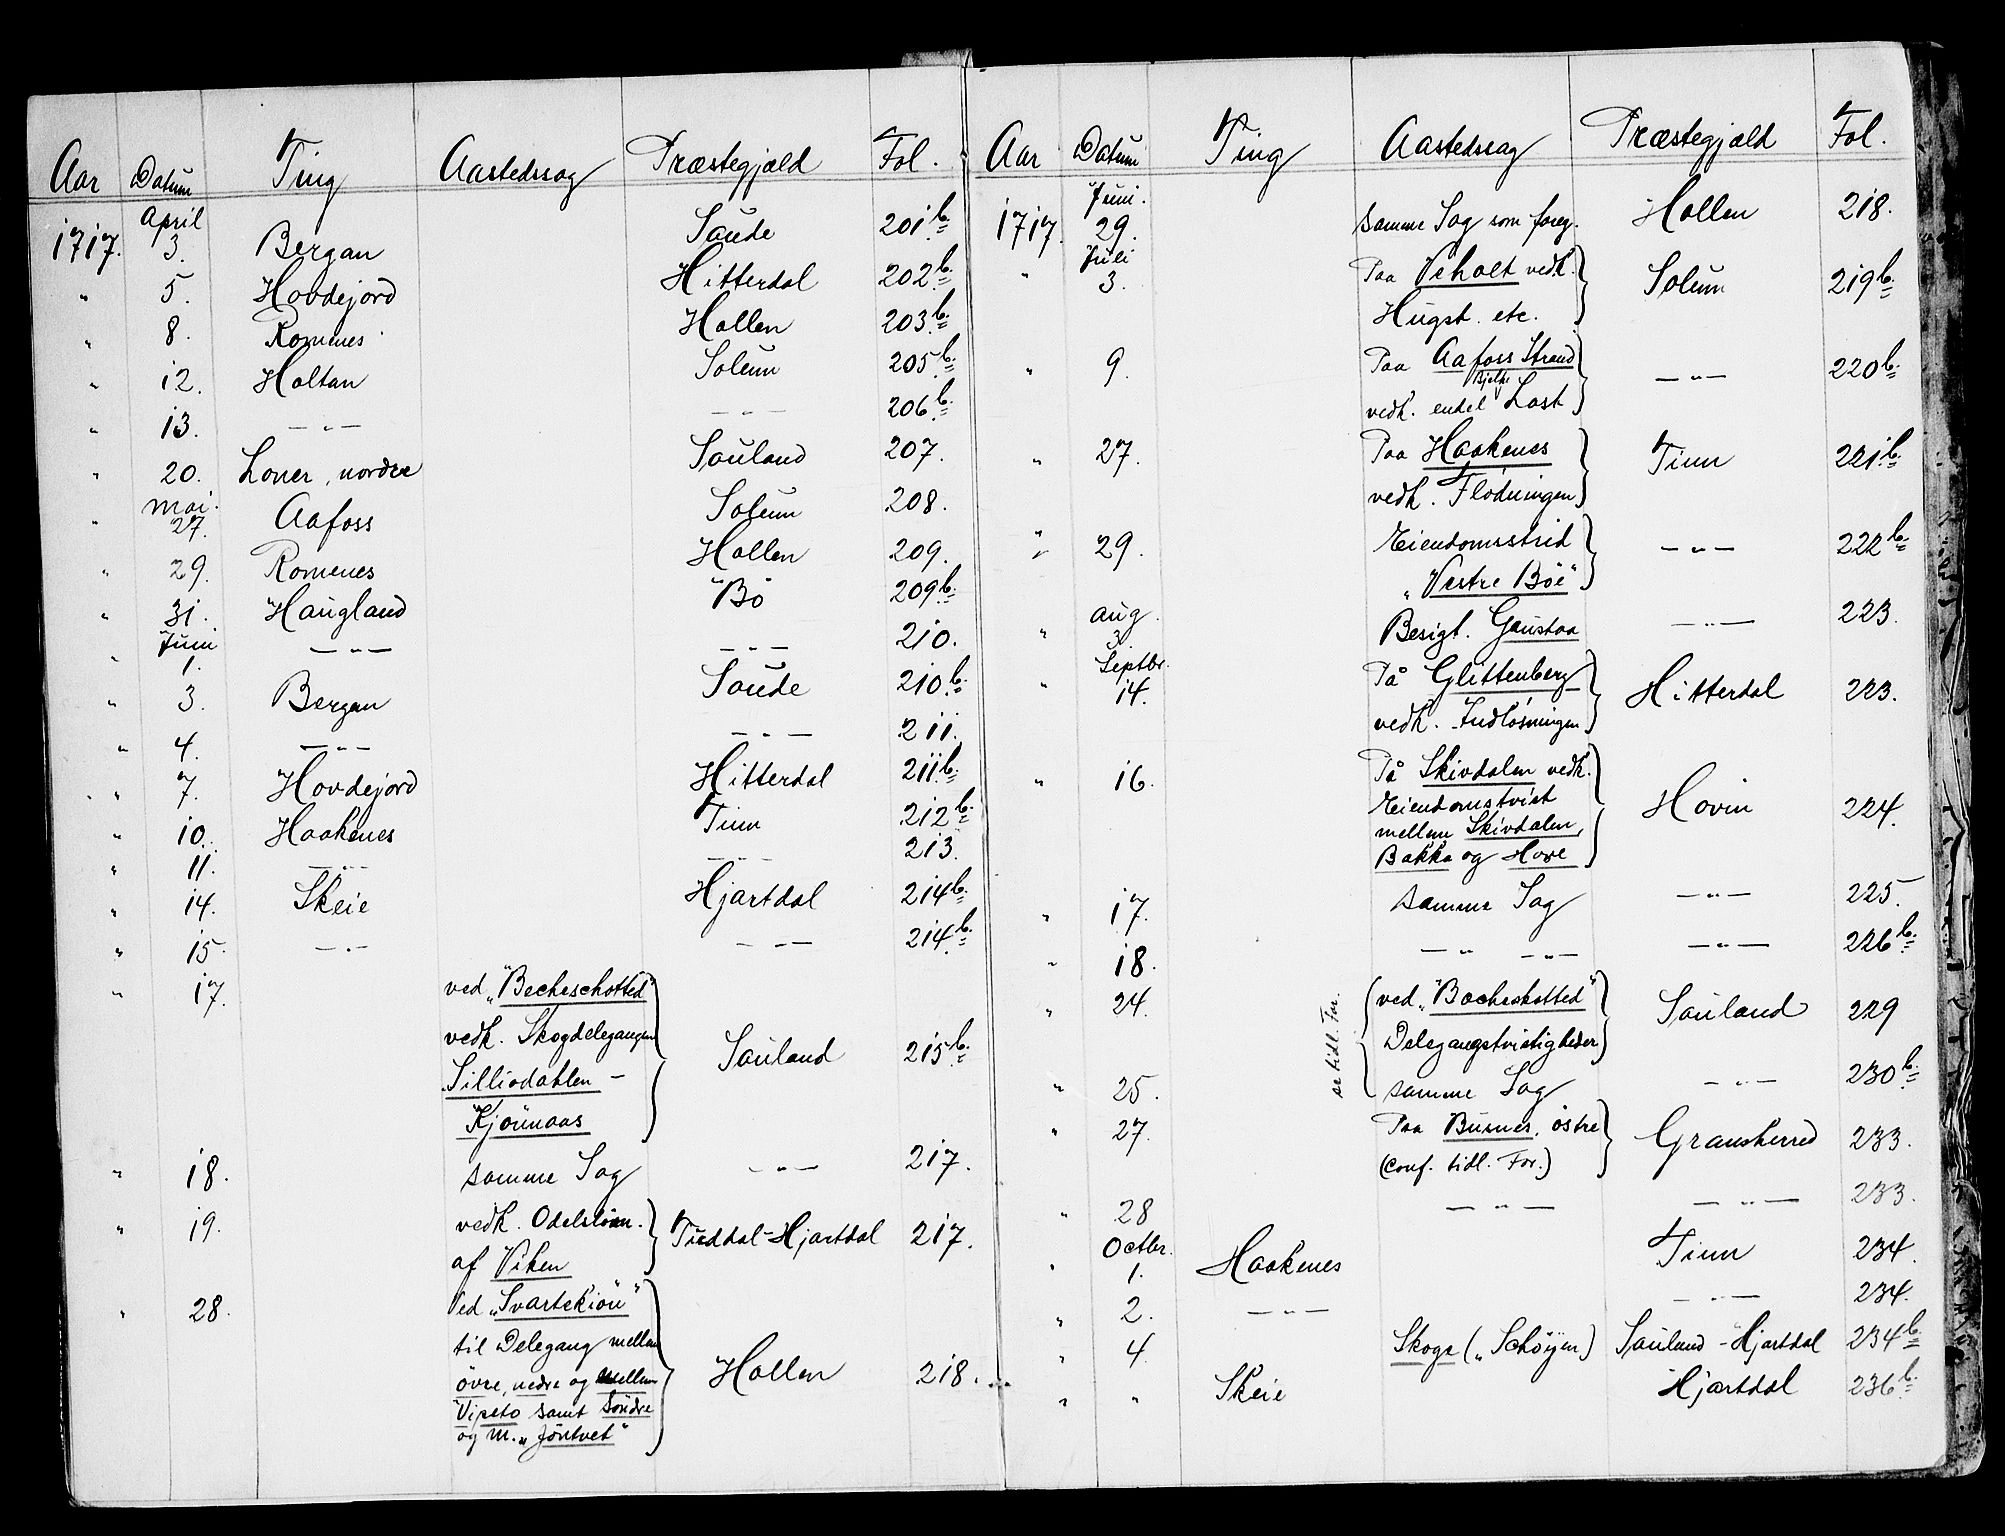 Aar Datum Ting Aastedssag Præstegjæld Fol.
1717. April 3. Bergan Saude 201b.
" 5. Hovdejord Hitterdal 202b.
" 8. Romenes Hollen 203b.
" 12. Holtan Solum 205b.
" 13. — " — — " — 206b.
" 20. Loner, nordre Sauland 207.
" Mai. 27. Aafoss Solum 208.
" 29. Romenes Hollen 209.
" 31. Haugland Bö 209b.
" Juni 1. — " — — " — 210.
" 3. Bergan Saude 210b.
" 4. — " — — " — 211.
" 7. Hovdejord Hitterdal 211b.
" 10. Haakenes Tinn 212b.
" 11. — " — — " — 213.
" 14. Skeie Hjartdal 214b.
" 15. — " — — " — 214b.
" 17. ved "Becheschotted"
vedk. Skogdelegangen
Silliodahlen — Sauland 215b.
Kjönnaas
" 18. samme Sag — " — 217.
" 19. vedk. Odelslösn.
af Viken Tuddal-Hjartdal 217.
" 28. Ved "Svartekiön"
til Delegang mellem
övre, nedre og mellem Hollen 218.
Vipeto samt Söndre
og M. "Jöntvet"
Aar Datum Ting Aastedssag Præstegjæld Fol.
1717. Juni. 29. samme Sag som foreg. Hollen 218.
" Juli 3. Paa Veholt vedk.
Hugst. etc. Solum 219b.
" 9. Paa Aafoss Strand
vedk. endel Bjelke Last — " — 220b.
" 27. Paa Haakenes
vedk. Flödningen Tinn 221b.
" 29. Eiendomsstrid
"Vestre Böe" — " — 222b.
" Aug. 3. Besigt. Gaustaa — " — 223.
" Septbr. 14. På Glittenberg
vedk. Indlösningen Hitterdal 223.
" 16. På Skivdalen vedk.
Eiendomstvist
mellem Skivdalen, Hovin 224.
Bakka og Hove
" 17. samme Sag — " — 225.
" 18. — " — — " — — " — 226b.
" 24. ved "Bocheskotted"
Delegangstvistigheder Sauland 229
se tidl. For.
" 25. samme Sag — " — 230b.
" 27. Paa Busnes, östre
(conf. tidl. For.) Gransherred 233.
" 28 — " — — " — 233.
" Octbr. 1. Haakenes Tinn 234.
" 2. — " — — " — 234.
" 4. Skoge ("Schöyen) Sauland-Hjartdal 234b
" " Skeie Hjartdal 236b.